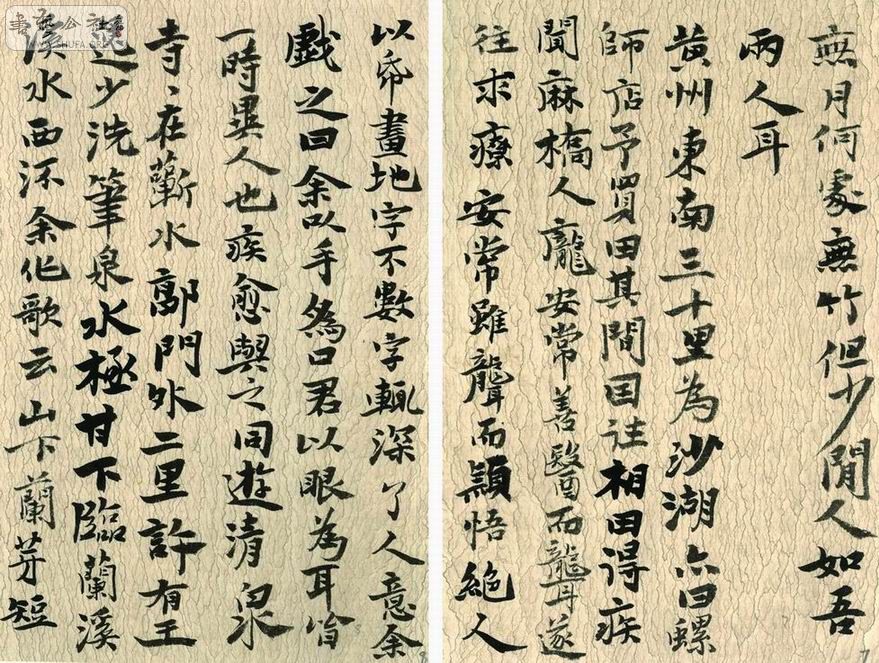 無月何處無竹但少閒人如吾
兩人耳
黃州東南三十里為沙湖亦曰螺
師店予買田其間因往相田得疾
聞麻橋人龐安常善醫而聾遂
往求療安常雖聾而穎悟絕人
7
以帋畫地字不數字輒深了人意余
戲之曰余以手為口君以眼為耳皆
一時異人也疾愈與之同遊清泉
寺〻在蘄水郭門外二里許有王
逸少洗筆泉水極甘下臨蘭溪
溪水西流余作歌云山下蘭芽短
8
書藝公社
WWW.SHUFA.ORG